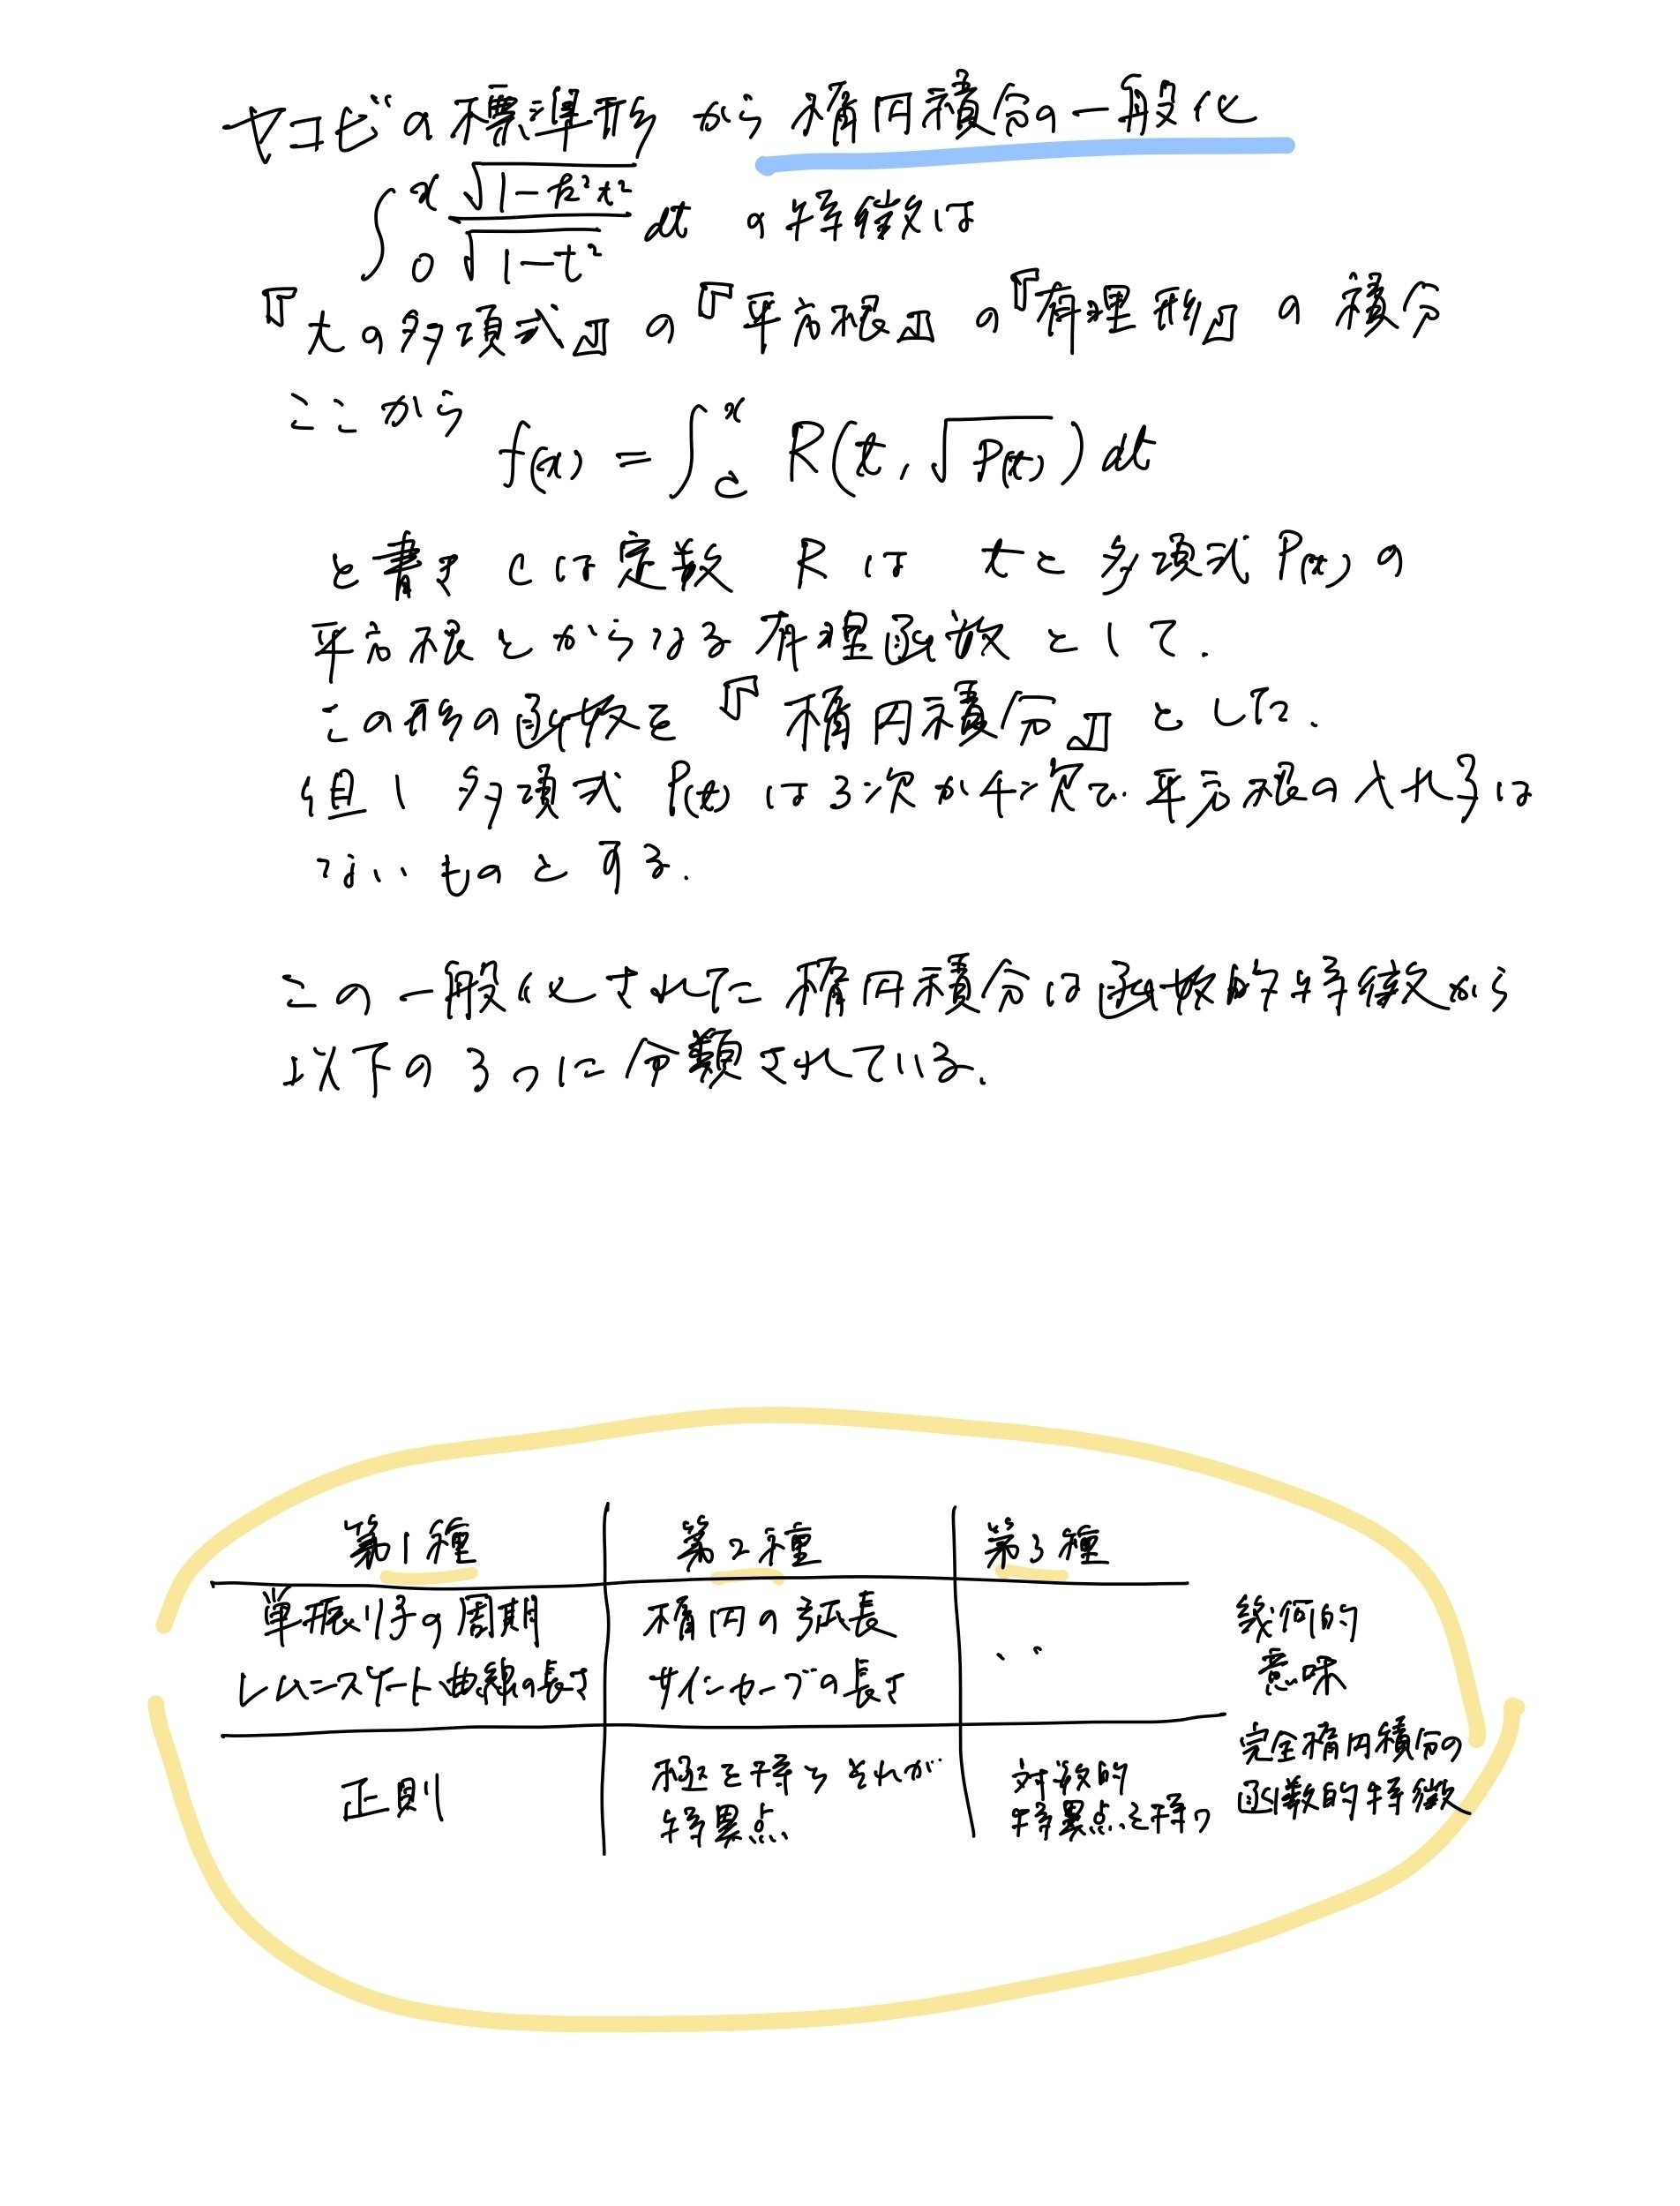 ヤコビの標準形 から 楕円積分の一般化
∫₀ˣ √(1-k²t²)/√(1-t²) dt の特徴は
『tの多項式』の『平方根』の『有理形』の積分
ここから
f(x) = ∫_c^x R(t, √P(t)) dt
と書き Cは定数 Rは tと多項式P(t)の
平方根とからなる有理函数として.
この形の函数を『楕円積分』とした.
但し 多項式P(t)は3次か4次で平方根の入れ子は
ないものとする.
この一般化された楕円積分は函数的特徴から
以下の3つに分類されている.
第1種 第2種 第3種
単振り子の周期 楕円の弧長 ‥ 幾何的
レムニスケート曲線の長さ サインカーブの長さ 意味
正則 極を持ちそれが 対数的 完全楕円積分の
特異点 特異点を持つ 函数的特徴